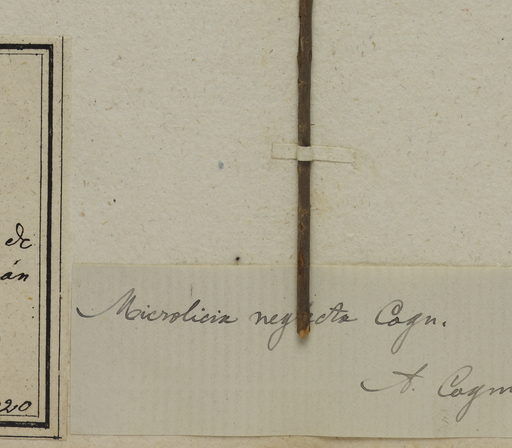 de
án
20
Microlicia neglecta Cogn.
A. Cogn